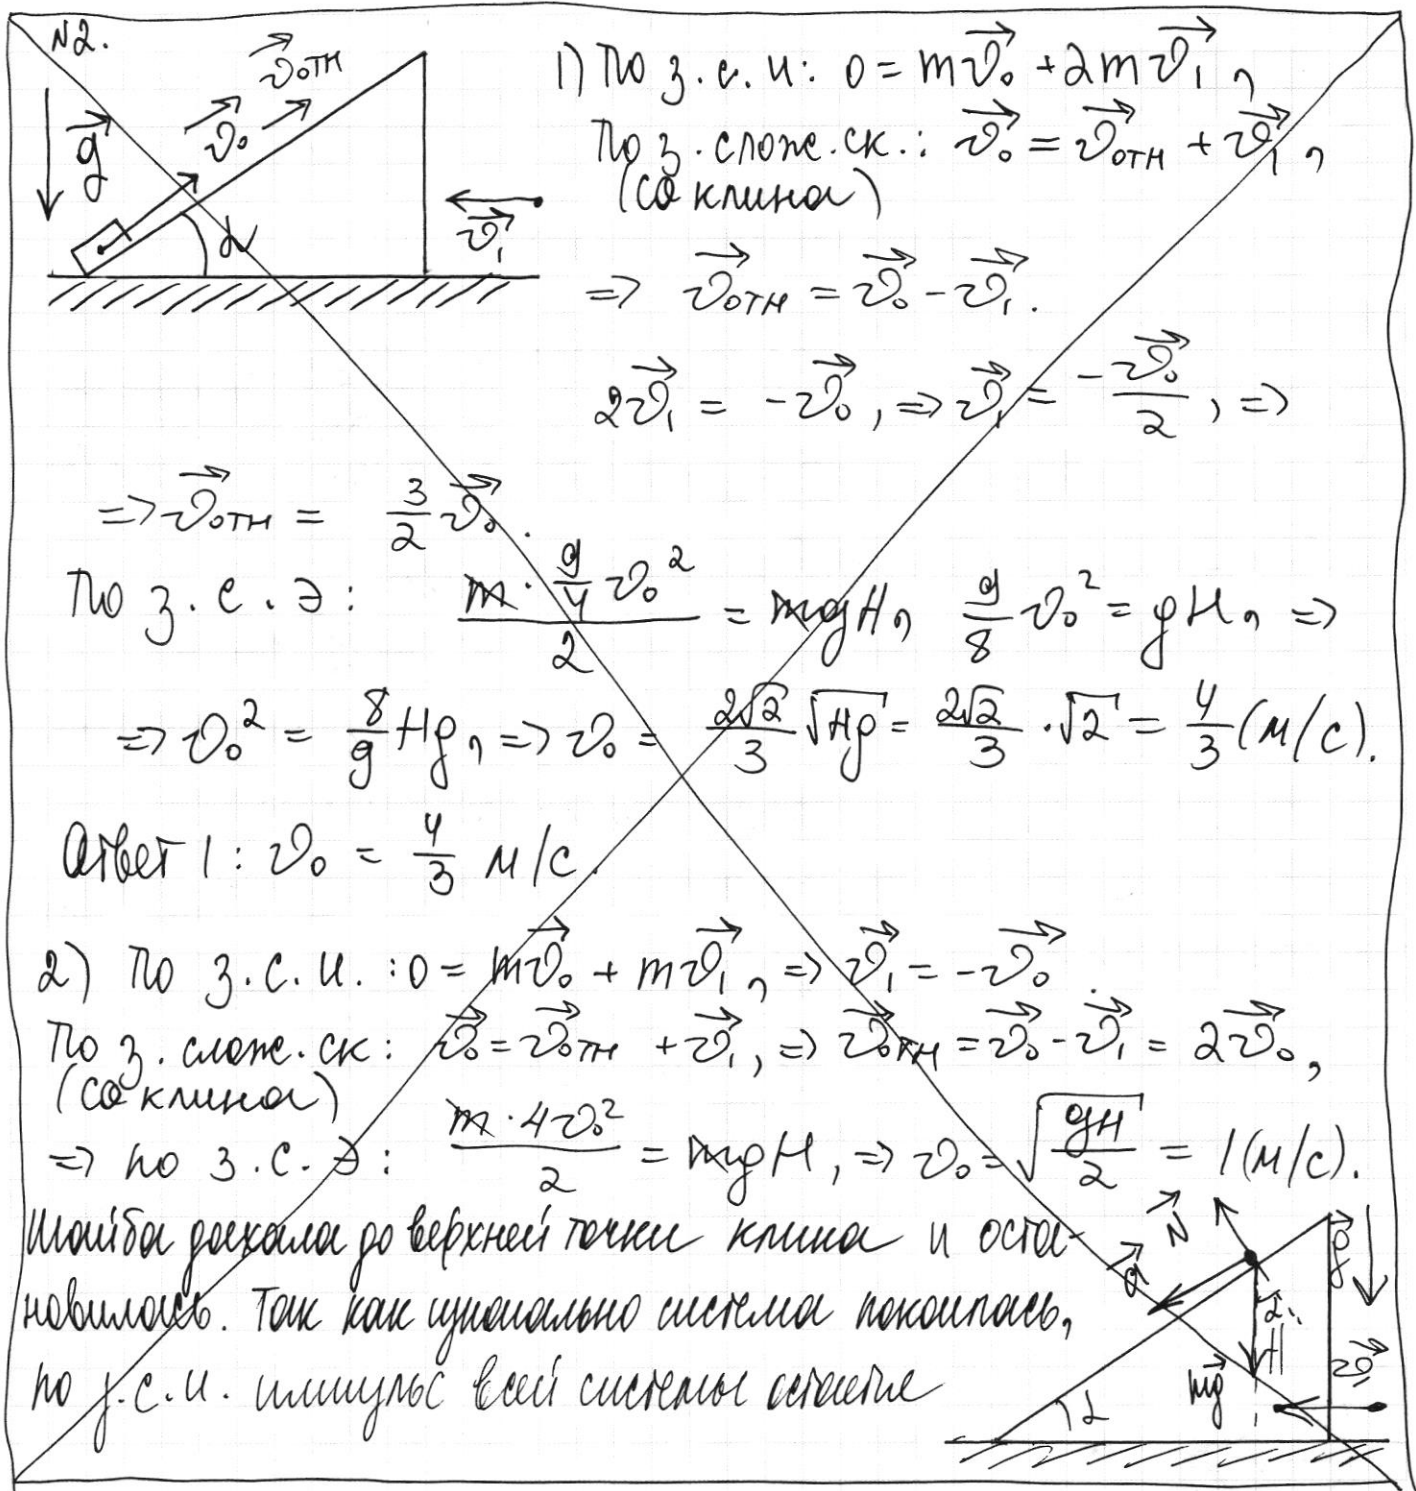 №2.
v⃗отн
v⃗₀
g⃗
α
v⃗₁
1) По з.с.и: 0 = mv⃗₀ + 2mv⃗₁,
По з. слож. ск.: v⃗₀ = v⃗отн + v⃗₁,
(СО клина)
=> v⃗отн = v⃗₀ - v⃗₁.
2v⃗₁ = -v⃗₀, => v⃗₁ = -v⃗₀/2, =>
=> v⃗отн = 3/2 v⃗₀.
По з.с.Э: (m · 9/4 v₀²)/2 = mgH, 9/8 v₀² = gH, =>
=> v₀² = 8/9 Hg, => v₀ = 2√2/3 √Hg = 2√2/3 · √2 = 4/3 (м/с).
Ответ 1: v₀ = 4/3 м/с.
2) По з.с.и.: 0 = mv⃗₀ + mv⃗₁, => v⃗₁ = -v⃗₀.
По з. слож. ск: v⃗₀ = v⃗отн + v⃗₁, => v⃗отн = v⃗₀ - v⃗₁ = 2v⃗₀,
(СО клина)
=> по з.с.Э: (m · 4v₀²)/2 = mgH, => v₀ = √(gH/2) = 1 (м/с).
Шайба доехала до верхней точки клина и оста-
новилась. Так как изначально система покоилась,
по з.с.и. импульс всей системы остаётся
N⃗
a⃗
g⃗
α
H
mg⃗
v⃗₁
α